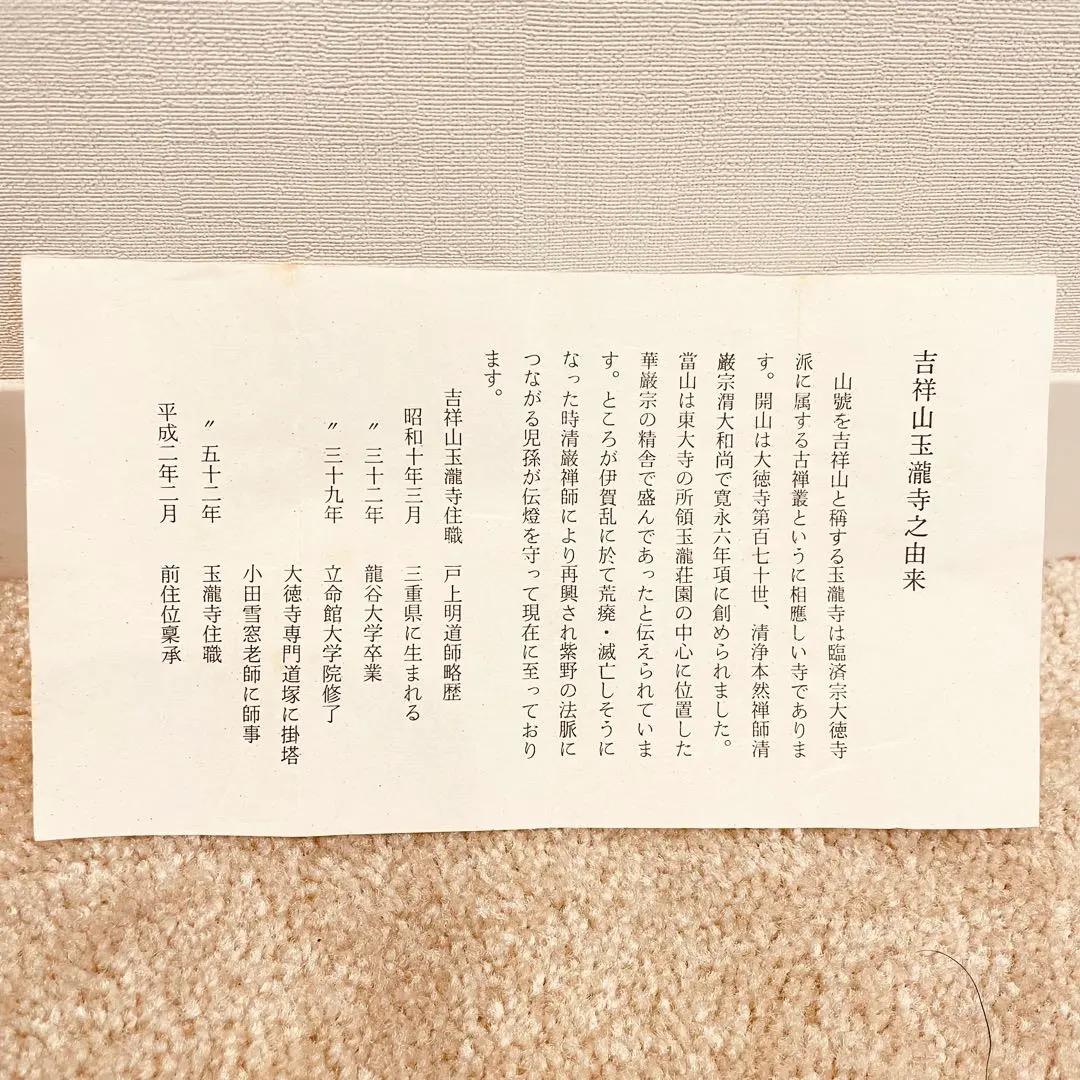 吉祥山玉瀧寺之由来
山號を吉祥山と稱する玉瀧寺は臨済宗大徳寺
派に属する古禅叢というに相應しい寺でありま
す。開山は大徳寺第百七十世、清浄本然禅師清
巌宗渭大和尚で寛永六年項に創められました。
當山は東大寺の所領玉瀧荘園の中心に位置した
華厳宗の精舎で盛んであったと伝えられていま
す。ところが伊賀乱に於て荒廃・滅亡しそうに
なった時清巌禅師により再興され紫野の法脈に
つながる児孫が伝燈を守って現在に至っており
ます。
吉祥山玉瀧寺住職 戸上明道師略歴
昭和十年三月 三重県に生まれる
〃 三十二年 龍谷大学卒業
〃 三十九年 立命館大学院修了
大徳寺専門道塚に掛塔
小田雪窓老師に師事
〃 五十二年 玉瀧寺住職
平成二年二月 前住位稟承